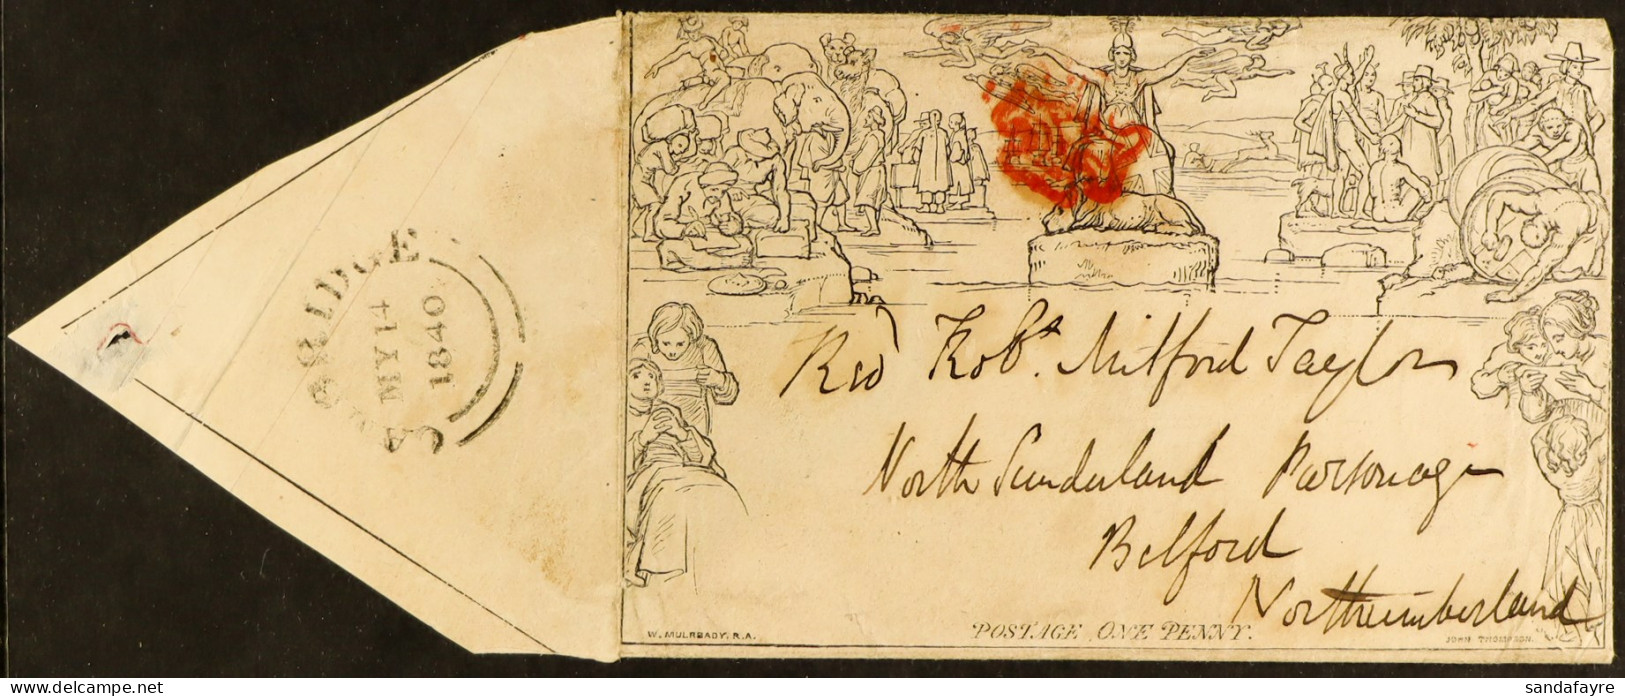 MY 14
1840
Revd Robt. Milford Taylor
North Sunderland Parsonage
Belford
Northumberland
W. MULREADY, R.A.
POSTAGE ONE PENNY.
JOHN THOMPSON.
delcampe.net
sandafayre